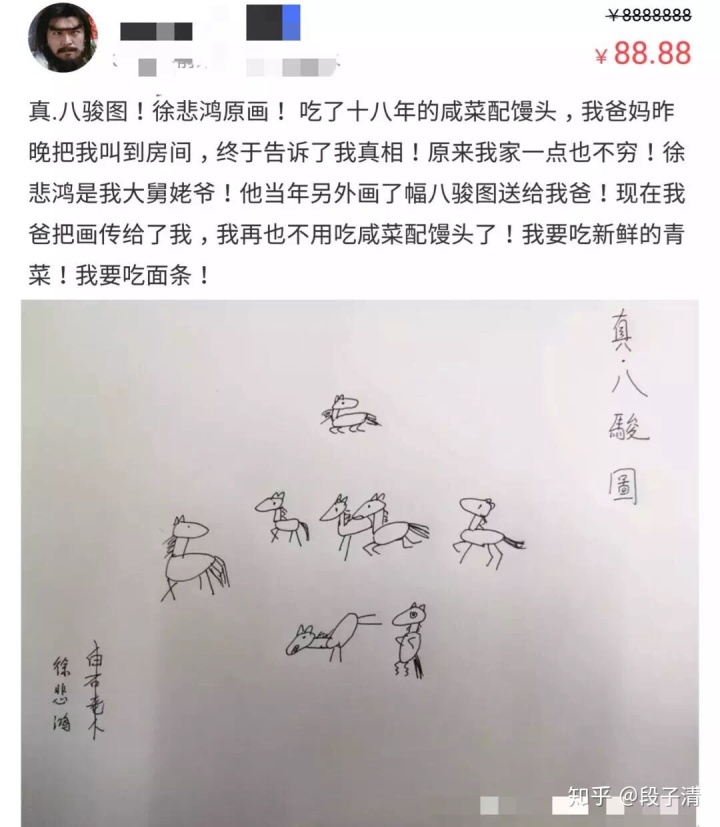 ￥8888888
￥88.88
真.八骏图！徐悲鸿原画！ 吃了十八年的咸菜配馒头，我爸妈昨
晚把我叫到房间，终于告诉了我真相！原来我家一点也不穷！徐
悲鸿是我大舅姥爷！他当年另外画了幅八骏图送给我爸！现在我
爸把画传给了我，我再也不用吃咸菜配馒头了！我要吃新鲜的青
菜！我要吃面条！
真·八駿圖
由石老人
徐悲鴻
知乎 @段子清